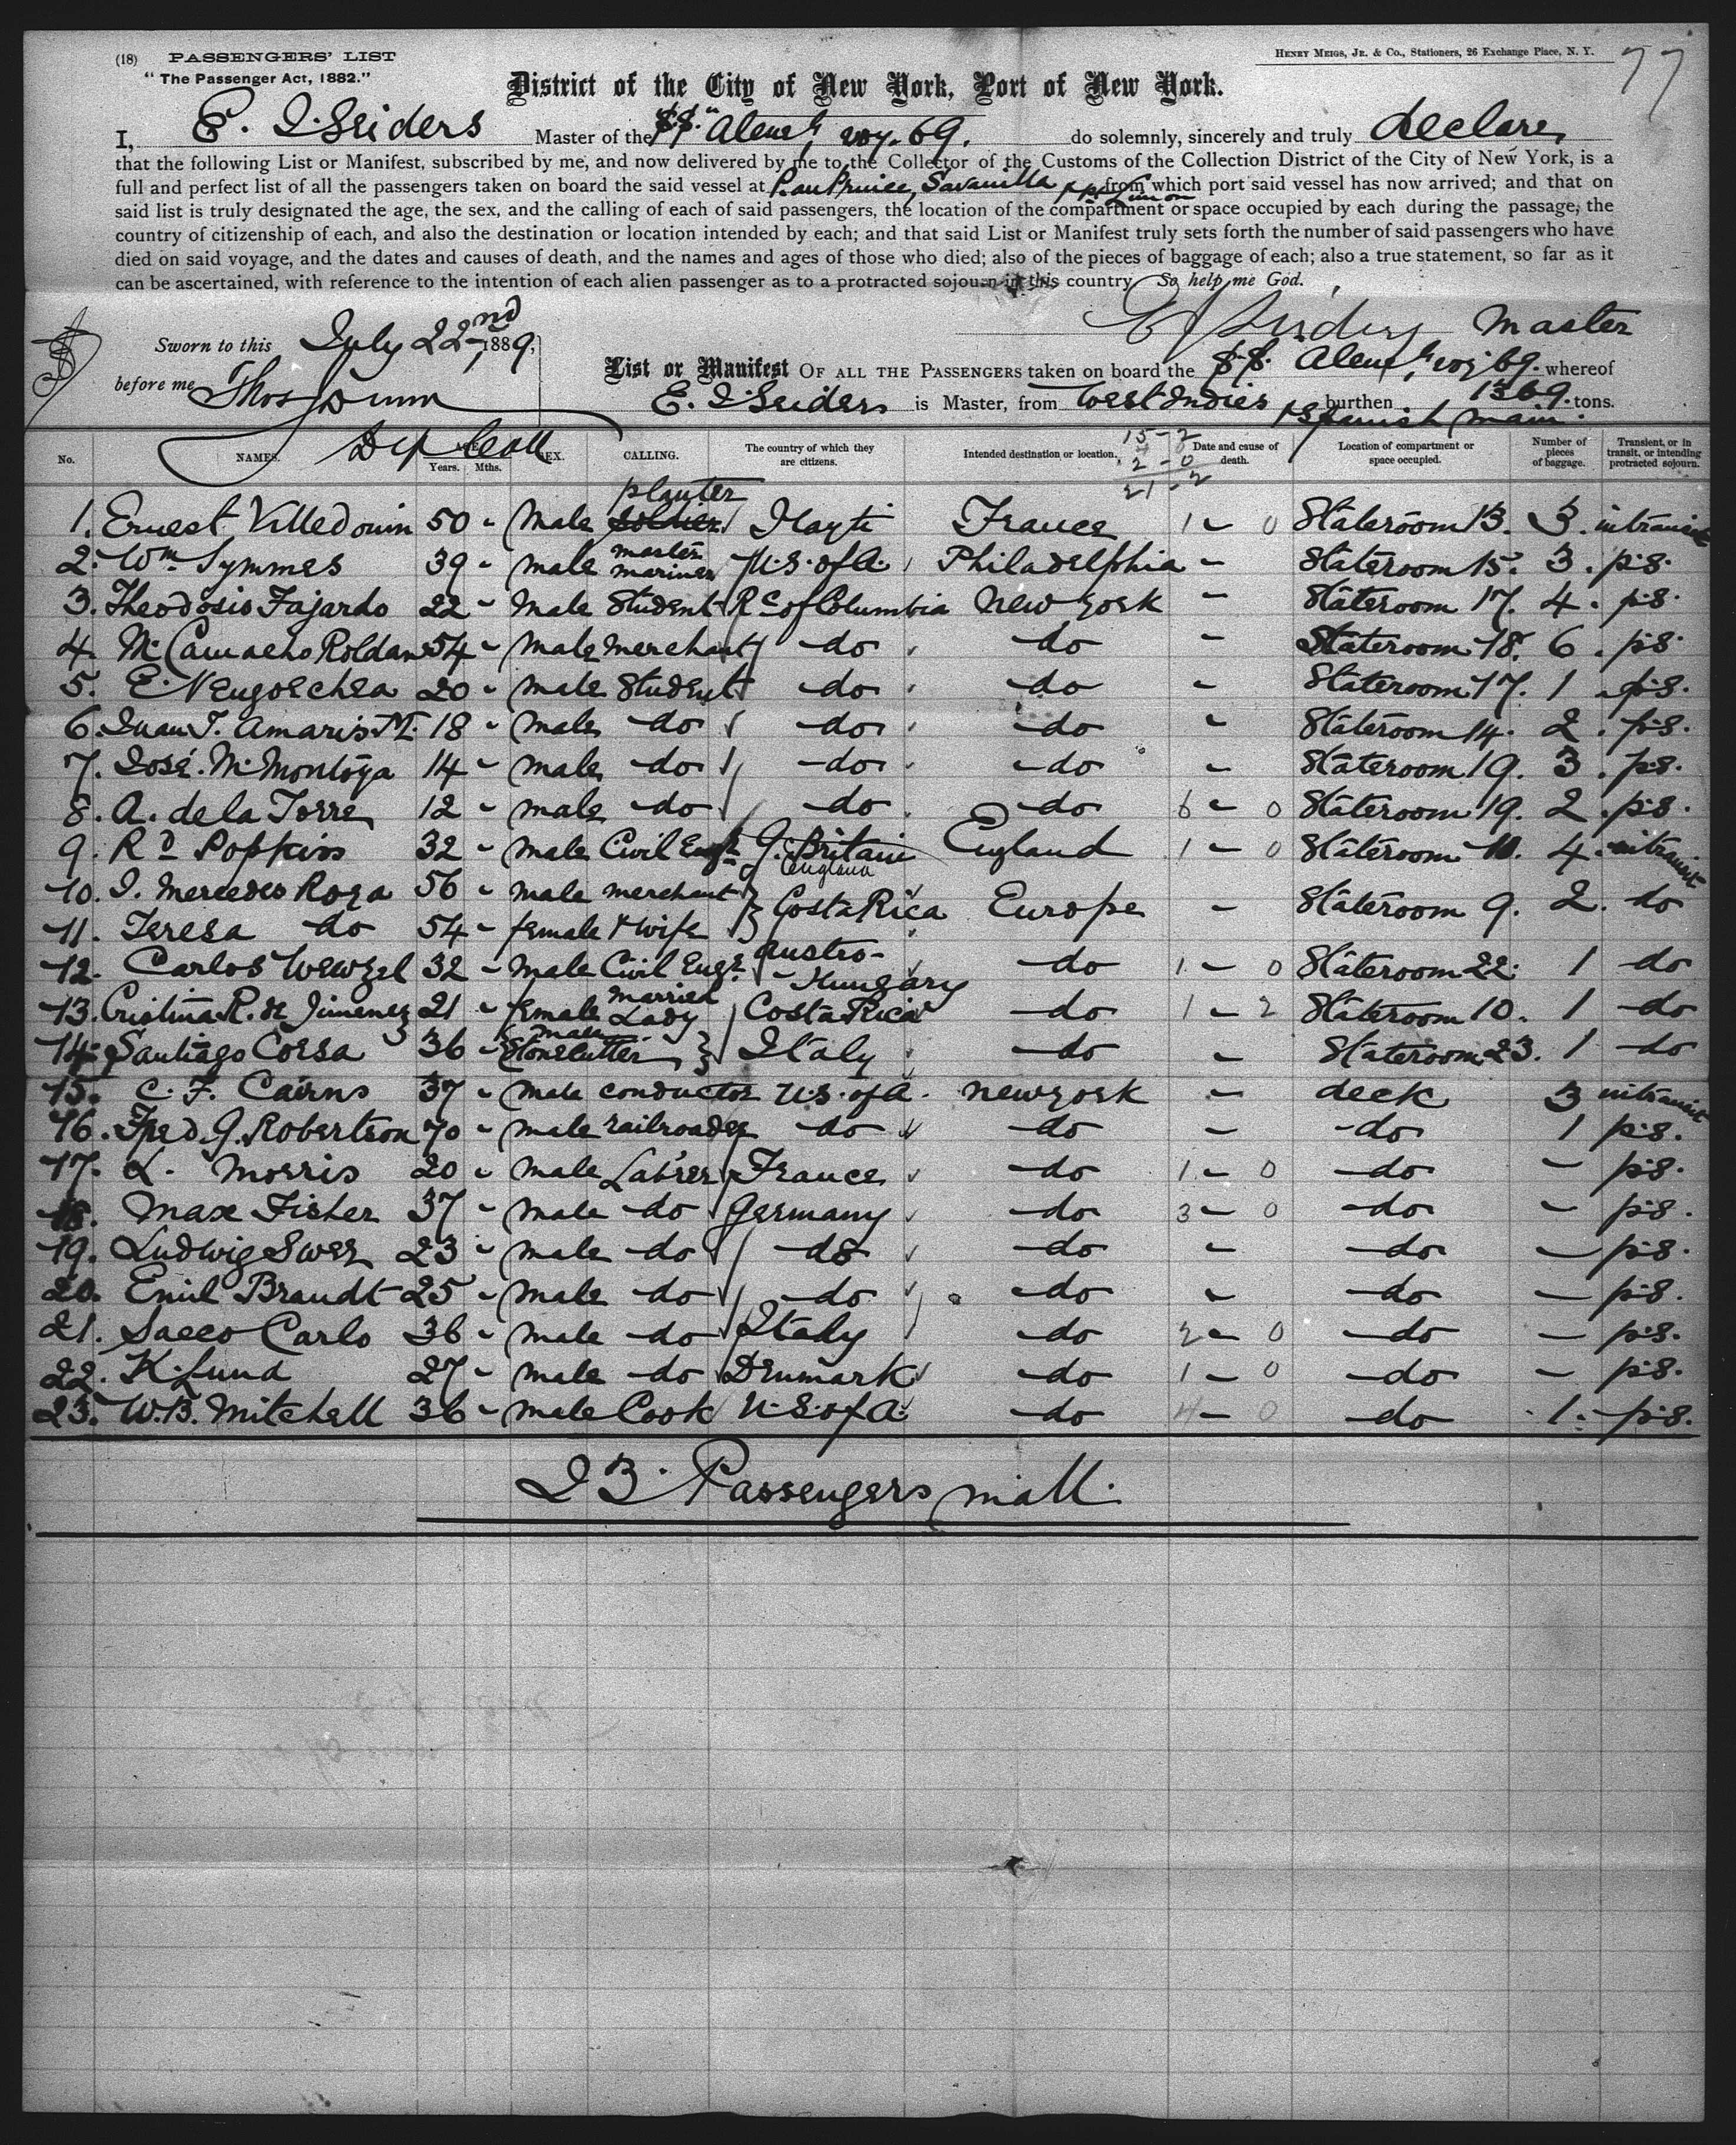 (18) PASSENGERS' LIST
HENRY MEIGS, JR. & Co., Stationers, 26 Exchange Place, N. Y.
77
"The Passenger Act, 1882."
District of the City of New York, Port of New York.
I, E. I. Seiders Master of the S.S. voy. 69. do solemnly, sincerely and truly declare,
that the following List or Manifest, subscribed by me, and now delivered by me to the Collector of the Customs of the Collection District of the City of New York, is a
full and perfect list of all the passengers taken on board the said vessel at P. au Prince, Savanilla & p. Limon from which port said vessel has now arrived; and that on
said list is truly designated the age, the sex, and the calling of each of said passengers, the location of the compartment or space occupied by each during the passage, the
country of citizenship of each, and also the destination or location intended by each; and that said List or Manifest truly sets forth the number of said passengers who have
died on said voyage, and the dates and causes of death, and the names and ages of those who died; also of the pieces of baggage of each; also a true statement, so far as it
can be ascertained, with reference to the intention of each alien passenger as to a protracted sojourn in this country. So help me God.
E I Seiders Master
Sworn to this July 22nd 1889,
before me Thos Dunn
Dep Coll
List or Manifest OF ALL THE PASSENGERS taken on board the S.S. voy 69. whereof
E. I. Seiders is Master, from West Indies & Spanish Main. burthen 1369. tons.
No. NAMES. AGE. Years. Mths. SEX. CALLING. The country of which they are citizens. Intended destination or location. Date and cause of death. Location of compartment or space occupied. Number of pieces of baggage. Transient, or in transit, or intending protracted sojourn.
15-2
2-0
21-2
1. Ernest Villedouin 50 " Male soldier planter Hayti France 1 - 0 Stateroom 13. 3. intransit
2. Wm. Symmes 39 " male master mariner U.S. of A. Philadelphia " Stateroom 15. 3. p.s.
3. Theodosio Fajardo 22 " Male Student Rc of Columbia New York " Stateroom 17. 4. p.s.
4. M. Camacho Roldan 54 " Male merchant do do " Stateroom 18. 6. p.s.
5. E. Nengoechea 20 " Male Student do do " Stateroom 17. 1 p.s.
6. Juan T. Amaris M. 18 " Male do do do " Stateroom 14. 2. p.s.
7. José M. Montoya 14 " Male do do do " Stateroom 19. 3. p.s.
8. A. de la Torre 12 " male do do do 6 - 0 Stateroom 19. 2. p.s.
9. Rd Popkiss 32 " male Civil Engr G. Britain England England 1 - 0 Stateroom 11. 4. intransit
10. J. Mercedes Roza 56 " male merchant } Costa Rica Europe " Stateroom 9. 2. do
11. Teresa do 54 " female & wife }
12. Carlos Wewzel 32 " Male Civil Engr Austro-Hungary do 1 - 0 Stateroom 22. 1 do
13. Cristina R. de Jimenez 21 " female married Lady Costa Rica do 1 - 2 Stateroom 10. 1 do
14. Santiago Corsa 36 " male Stonecutter } Italy do " Stateroom 23. 1 do
15. C. F. Cairns 37 " Male conductor U.S. of A. New York " deck 3 intransit
16. Fred. G. Robertson 40 " male railroader do do " do 1 p.s.
17. L. Morris 20 " male Lab'rer France do 1 - 0 do - p.s.
18. Max Fisher 37 " male do Germany do 3 - 0 do - p.s.
19. Ludwig Swez 23 " male do do do " do - p.s.
20. Emil Brandt 25 " male do do do " do - p.s.
21. Sacco Carlo 36 " male do Italy do 2 - 0 do - p.s.
22. K. Lund 27 " male do Denmark do 1 - 0 do - p.s.
23. W. B. Mitchell 36 " male Cook U.S. of A. do 4 - 0 do 1. p.s.
23. Passengers in all.